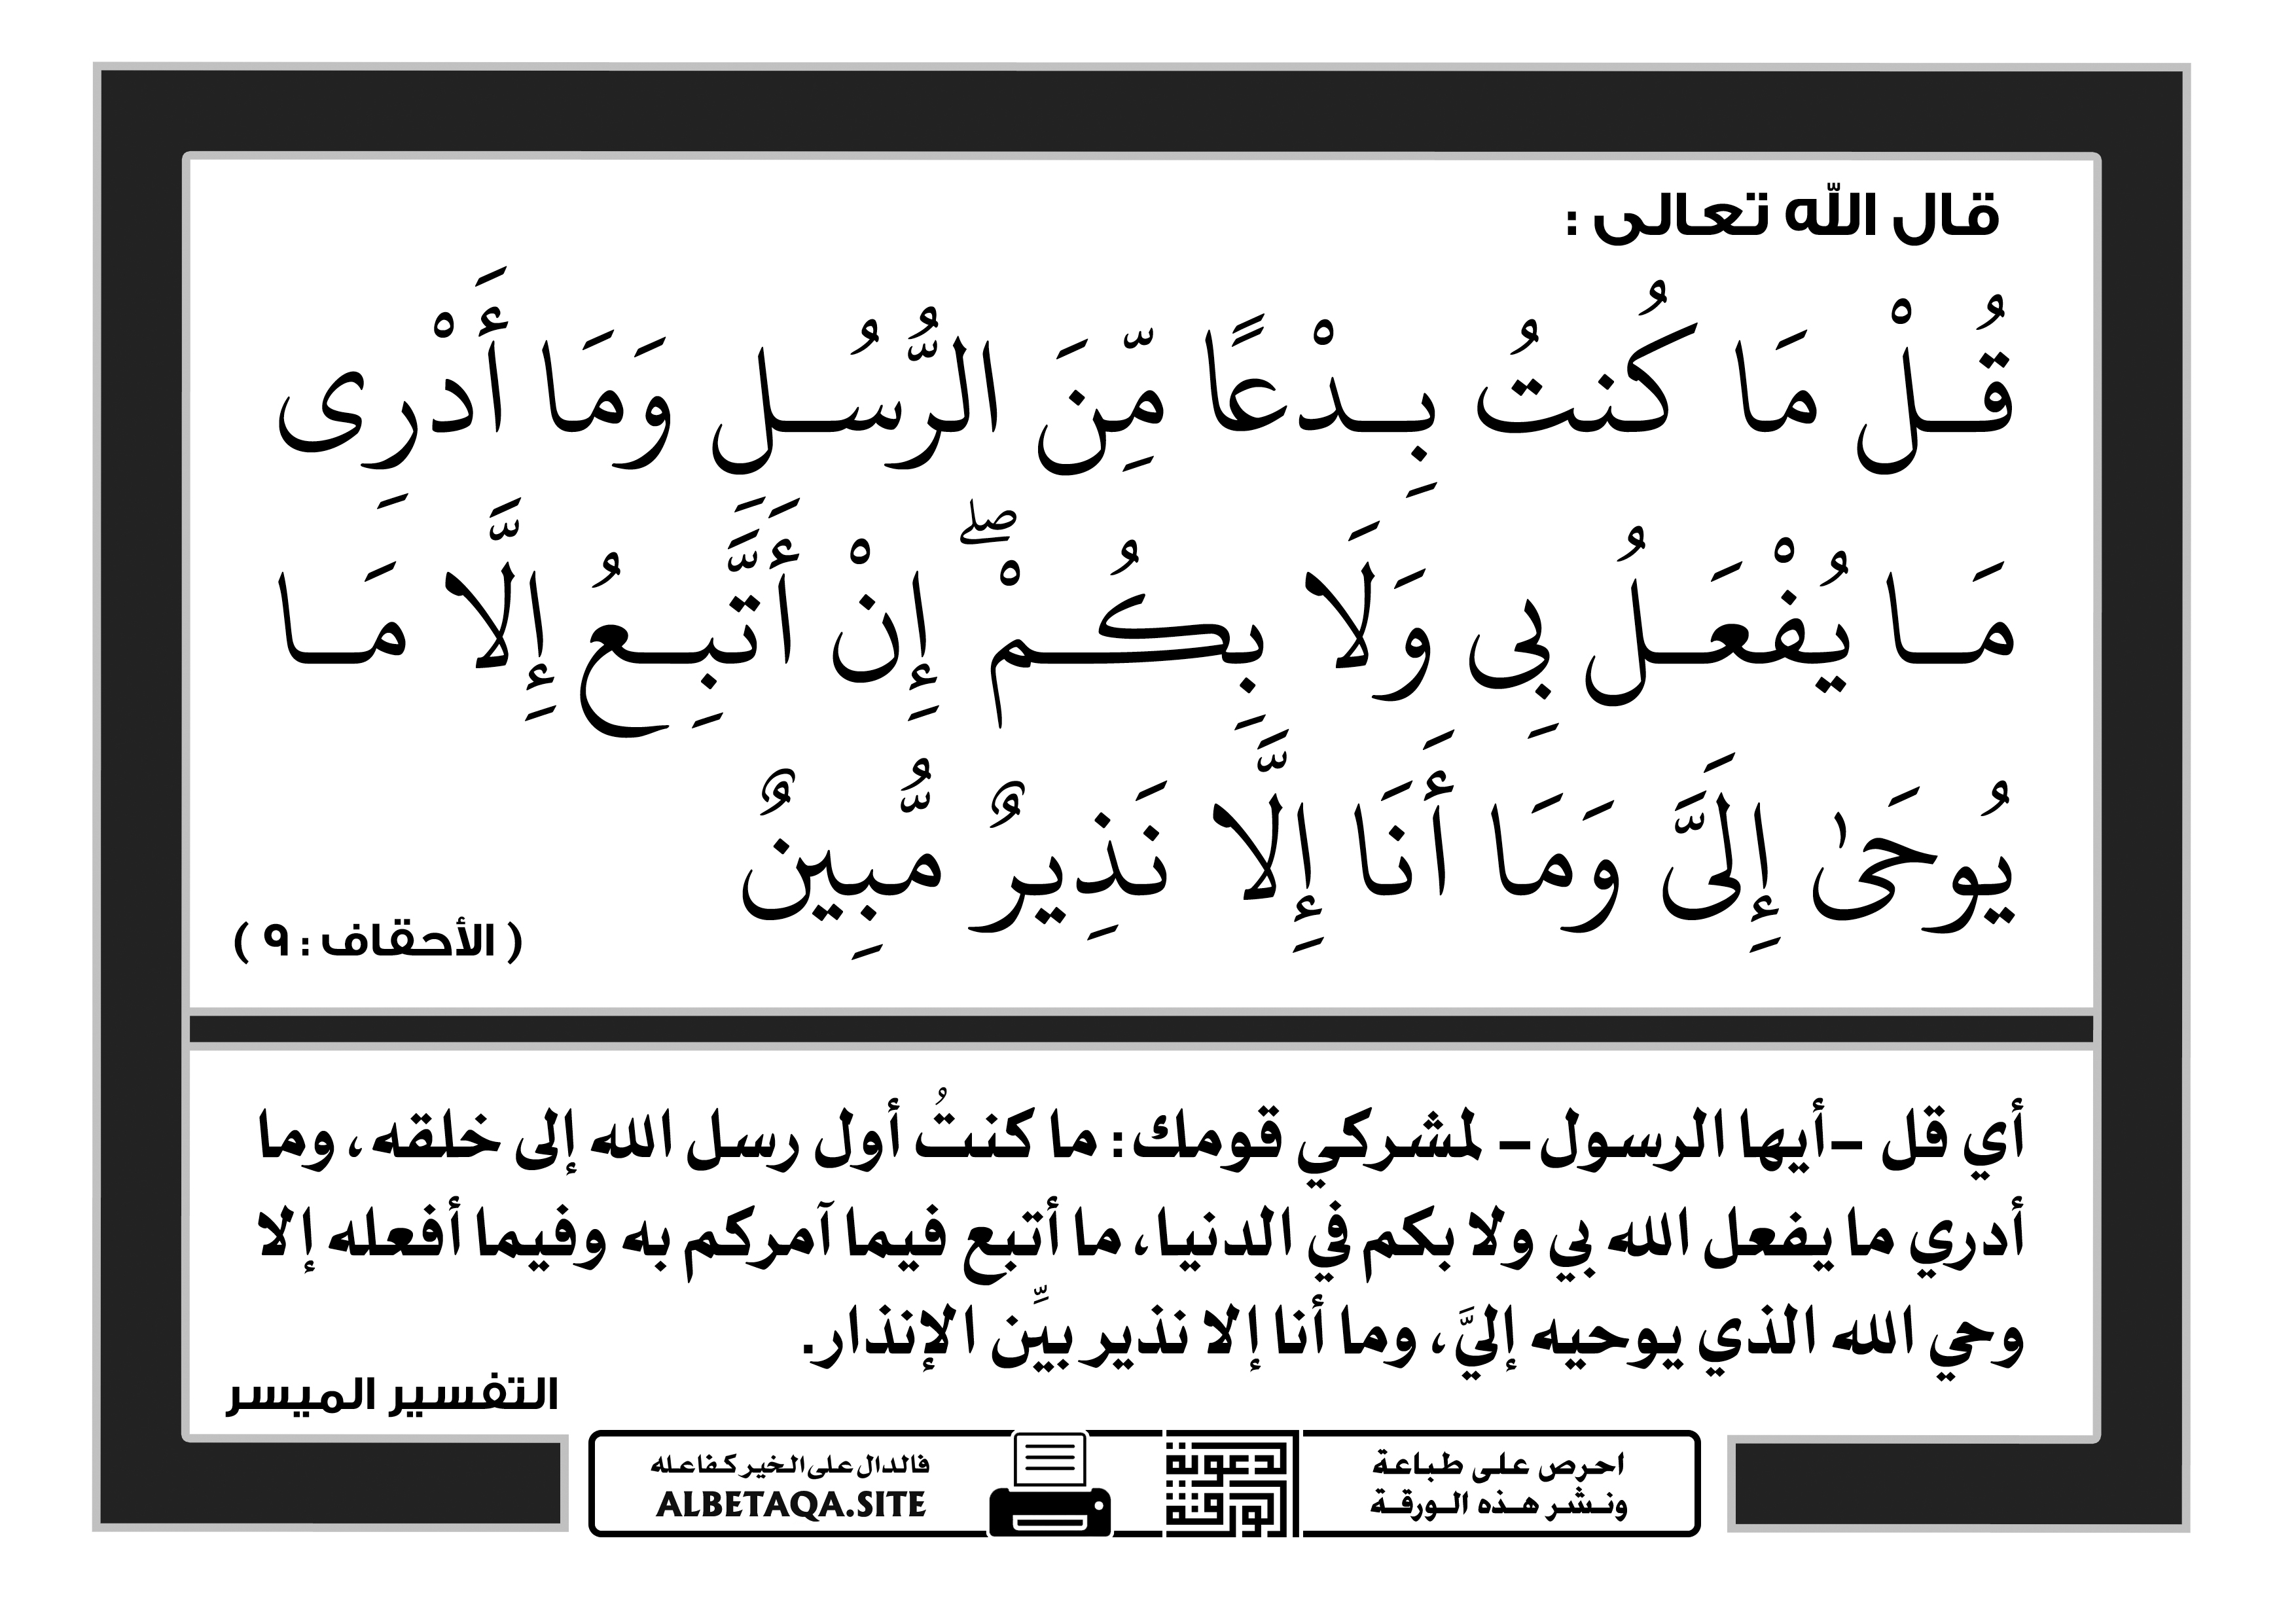 قال الله تعالى :
قُلْ مَا كُنتُ بِدْعًا مِّنَ الرُّسُلِ وَمَا أَدْرِى
مَا يُفْعَلُ بِى وَلَا بِكُمْ ۖ إِنْ أَتَّبِعُ إِلَّا مَا
يُوحَىٰ إِلَىَّ وَمَا أَنَا إِلَّا نَذِيرٌ مُّبِينٌ
( الأحقاف : ٩ )
أي قل -أيها الرسول- لمشركي قومك: ما كنتُ أول رسل الله إلى خلقه، وما
أدري ما يفعل الله بي ولا بكم في الدنيا، ما أتبع فيما آمركم به وفيما أفعله إلا
وحي الله الذي يوحيه إليَّ، وما أنا إلا نذير بيِّن الإنذار.
التفسير الميسر
احرص على طباعة
ونشر هذه الورقة
الدعوية
الورقة
فالدال على الخير كفاعله
ALBETAQA.SITE